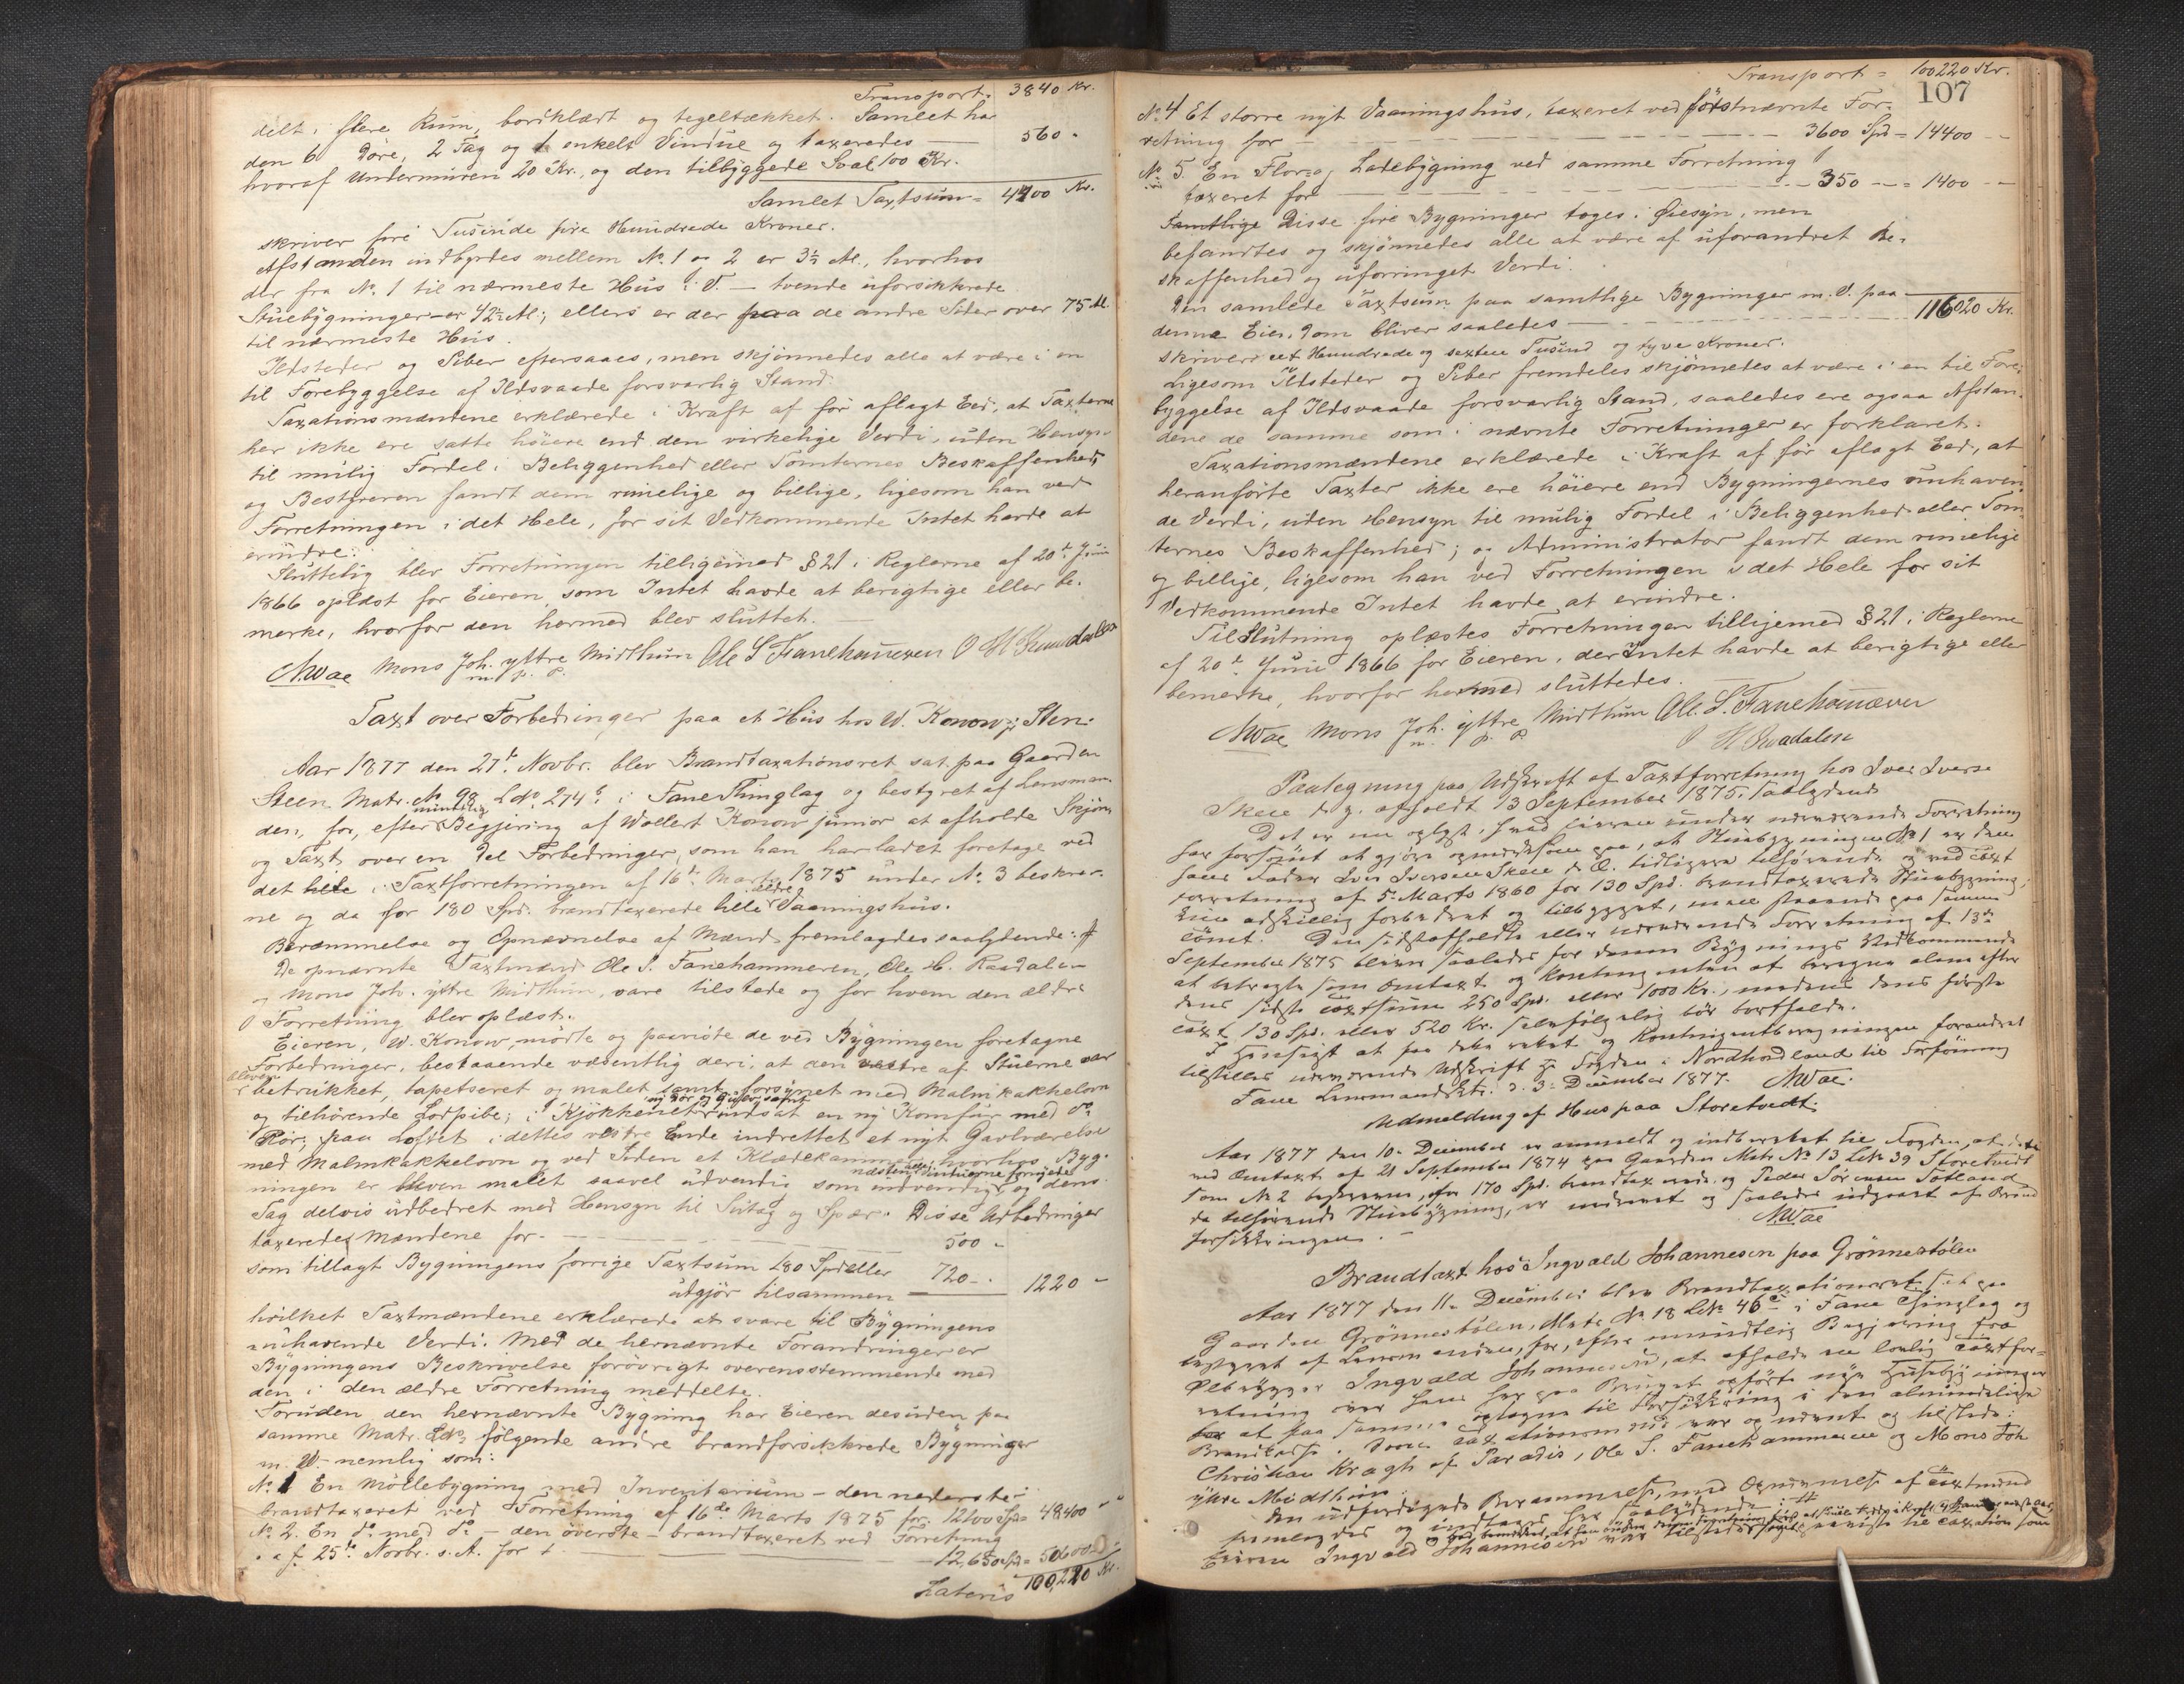 Transport. 3840 Kr.
delt i flere Rum, bordklædt og tegeltækket. Samlet har
den 6 Döre, 2 Fag og 1 enkelt Vindue og taxeredes 560 "
hvoraf Undermuren 20 Kr., og den tilbyggede Sval 100 Kr.
Samlet Taxtsum = 4400 Kr.
skriver fire Tusinde fire Hundrede Kroner.
Afstanden indbyrdes mellem No. 1 og 2 er 3½ Al., hvorhos
der fra No. 1 til nærmeste Hus i V. – tvende uforsikkrede
Stuebygninger – er 42½ Al; ellers er der paa de andre Sider over 75 Al.
til nærmeste Hus.
Ildsteder og Piber eftersaaes, men skjönnedes alle at være i en
til Forebyggelse af Ildsvaade forsvarlig Stand.
Taxationsmændene erklærede i Kraft af før aflagt Eed, at Taxterne
her ikke ere satte höiere end den virkelige Verdi, uden Hensyn
til mulig Fordel i Beliggenhed eller Tomternes Beskaffenhed,
og Bestyreren fandt dem rimelige og billige, ligesom han ved
Forretningen i det Hele, for sit Vedkommende Intet havde at
erindre.
Sluttelig blev Forretningen tilligemed § 21 i Reglerne af 20de Juni
1866 oplæst for Eieren, som Intet havde at berigtige eller be-
merke, hvorfor den hermed blev sluttet.
AWae Mons Joh. yttre Midthun Ole S. Fanehammeren O H Raadalen
m. p. P.
Taxt over Forbedringer paa et Hus hos W. Konow jr. Sten.
Aar 1877 den 27de Novbr. blev Brandtaxationsret sat paa Gaarden
Steen Matr. No 98 LNo. 274 i Fane Thinglag og bestyret af Lensman-
den, for, efter mundtlig Begjæring af Wollert Konow junior at afholde Skjön
og Taxt over en Del Forbedringer, som han har ladet foretage ved
det hele i Taxtforretningen af 16de Marts 1875 under No. 3 beskrev-
ne og da for 180 Spd. brandtaxerede lille ældre Vaaningshus.
Berammelse og Opnævnelse af Mænd fremlagdes saalydende: #
De opnævnte Taxtmænd Ole S. Fanehammeren, Ole H. Raadalen
og Mons Joh. yttre Midthun, vare tilstede og for hvem den ældre
Forretning blev oplæst.
Eieren, W. Konow, mödte og paaviste de ved Bygningen foretagne
Forbedringer, bestaaende væsentlig deri, at den vestre af Stuerne var
bleven betrukket, tapetseret og malet samt forsynet med Malmkakkelovn
og tilhörende Lodpibe; i Kjökkenet ny Dör og Gulv, samt indsat en ny Komfur med do
Rör; paa Loftet i dettes vestre Ende indrettet et nyt Gavlværelse
med Malmkakkelovn og ved Siden et Klædekammer, hvorhos Byg-
ningen er bleven malet saavel udvendig som indvendig, næsten alle Vinduerne fornyede og dens
Tag delvis udbedret med Hensyn til Sutag og Spær. Disse Udbedringer
taxeredes Mændene for. 500 "
som tillagt Bygningens forrige Taxtsum 180 Spd eller 720 "
udgjör tilsammen 1220 "
hvilket Taxtmændene erklærede at svare til Bygningens
iboende Verdi. Med de hernævnte Forandringer er
Bygningens Beskrivelse forövrigt overensstemmende med
den i den ældre Forretning meddelte.
Foruden den hernævnte Bygning har Eieren desuden paa
samme Matr. LNo. fölgende andre brandforsikkrede Bygninger
m. V. nemlig som:
No. 1 En Möllebygning med Inventarium – den nederste –
brandtaxeret ved Forretning af 16de Marts 1875 for: 12100 Spd = 48400 "
No. 2. En do med do – den överste – brandtaxeret ved Forretning
af 25de Novbr. s. A. for 12,650 Spd = 50600 "
Lateris 100,220 Kr.
107
Transport = 100220 Kr.
No. 4 Et större nyt Vaaningshus, taxeret ved förstnævnte For-
retning for 3600 Spd = 14400 "
No. 5. En Flor og Ladebygning ved samme Forretning
taxeret for 350 " = 1400 "
Samtlige Disse fire Bygninger toges i Öiesyn, men
befandtes og skjönnedes alle at være af uforandret Be-
skaffenhed og uforringet Verdi.
Den samlede Taxtsum paa samtlige Bygninger m. V. paa
denne Eiendom bliver saaledes 116020 Kr.
skriver eet Hundrede og sexten Tusind og tyve Kroner.
Ligesom Ildsteder og Piber fremdeles skjönnedes at være i en til Fore-
byggelse af Ildsvaade forsvarlig Stand, saaledes ere ogsaa Afstan-
dene de samme som i nævnte Forretninger er forklaret.
Taxationsmændene erklærede i Kraft af för aflagt Eed, at
heranförte Taxter ikke ere höiere end Bygningernes iboen-
de Verdi, uden Hensyn til mulig Fordel i Beliggenhed eller Tom-
ternes Beskaffenhed; og Administrator fandt dem rimelige
og billige, ligesom han ved Forretningen i det Hele for sit
Vedkommende Intet havde at erindre.
Til Slutning oplæstes Forretningen tilligemed § 21 i Reglerne
af 20de Juni 1866 for Eieren, der Intet havde at berigtige eller
bemerke, hvorfor hermed sluttedes.
AWae Mons Joh. yttre Midthun Ole S. Fanehammeren
m. p. P. O H Raadalen
Paategning paa Udskrift af Taxtforretning hos Iver Iversen
Skeie d. y. afholdt 13 September 1875, saalydende
Det er nu oplyst, hvad Eieren under nærværende Forretning
har forsömt at gjöre opmerksom paa, at Stuebygningen No 1 er den
hans Fader Iver Iversen Skeie d. Æ. tidligere tilhörende og ved Taxt
forretning af 5 Marts 1860 for 130 Spd. brandtaxerede Stuebygning,
kun adskillig forbedret og tilbygget, men staaende paa samme
Tömt. Den sidstafholdte eller nærværende Forretning af 13de
September 1875 bliver saaledes for denne Bygnings Vedkommende
at betragte som Omtaxt og Kontingenten at beregne alene efter
dens sidste Taxtsum 250 Spd. eller 1000 Kr., medens dens förste
Taxt 130 Spd. eller 520 Kr. selvfölgelig bör bortfalde.
I Hensigt at faa dette rettet og Kontingentberegningen forandret
tilstilles nærværende Udskrift Hr Fogden i Nordhordland til Forföining
Fane Lensmandsktr. d. 3 December 1877. AWae.
Udmelding af Hus paa Storetvedt.
Aar 1877 den 10. December er anmeldt og indberettet til Fogden, at det
ved Omtaxt af 21 September 1874 paa Gaarden Matr No 13 LNo 39 Storetvedt
som No 2 beskrevne, for 170 Spd. brandtaxerede og Peder Sörensen Totland
da tilhörende Stuebygning, er nedrevet og saaledes udgaaet af Brand
forsikkringen. AWae
Brandtaxt hos Ingvald Johannesen paa Grönnestölen
Aar 1877 den 11. December blev Brandtaxationsret sat paa
Gaarden Grönnestölen, Matr No 18 LNo 46 i Fane Thinglag og
bestyret af Lensmanden, for, efter mundtlig Begjæring fra
Ølbrygger Ingvald Johannesen, at afholde en lovlig Taxtfor-
retning over hans her paa Bruget opförte nye Husebygninger
for at faa samme optagne til Forsikkring i den almindelige
Brandkasse. Som Taxationsmænd var opnævnt og tilstede:
Christian Kragh af Paradis, Ole S. Fanehammeren og Mons Joh
yttre Midthun.
Den udfærdigede Berammelse, med Opnævnelse af Taxtmænd
fremlagdes og indtages her saalydende: #
Eieren Ingvald Johannesen var tilstede paaviste til Taxation som